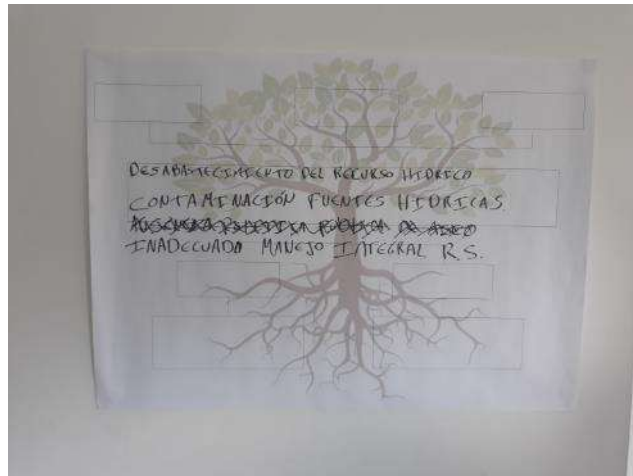 DESABASTECIMIENTO DEL RECURSO HIDRICO
CONTAMINACIÓN FUENTES HIDRICAS.
INADECUADO MANEJO INTEGRAL R.S.